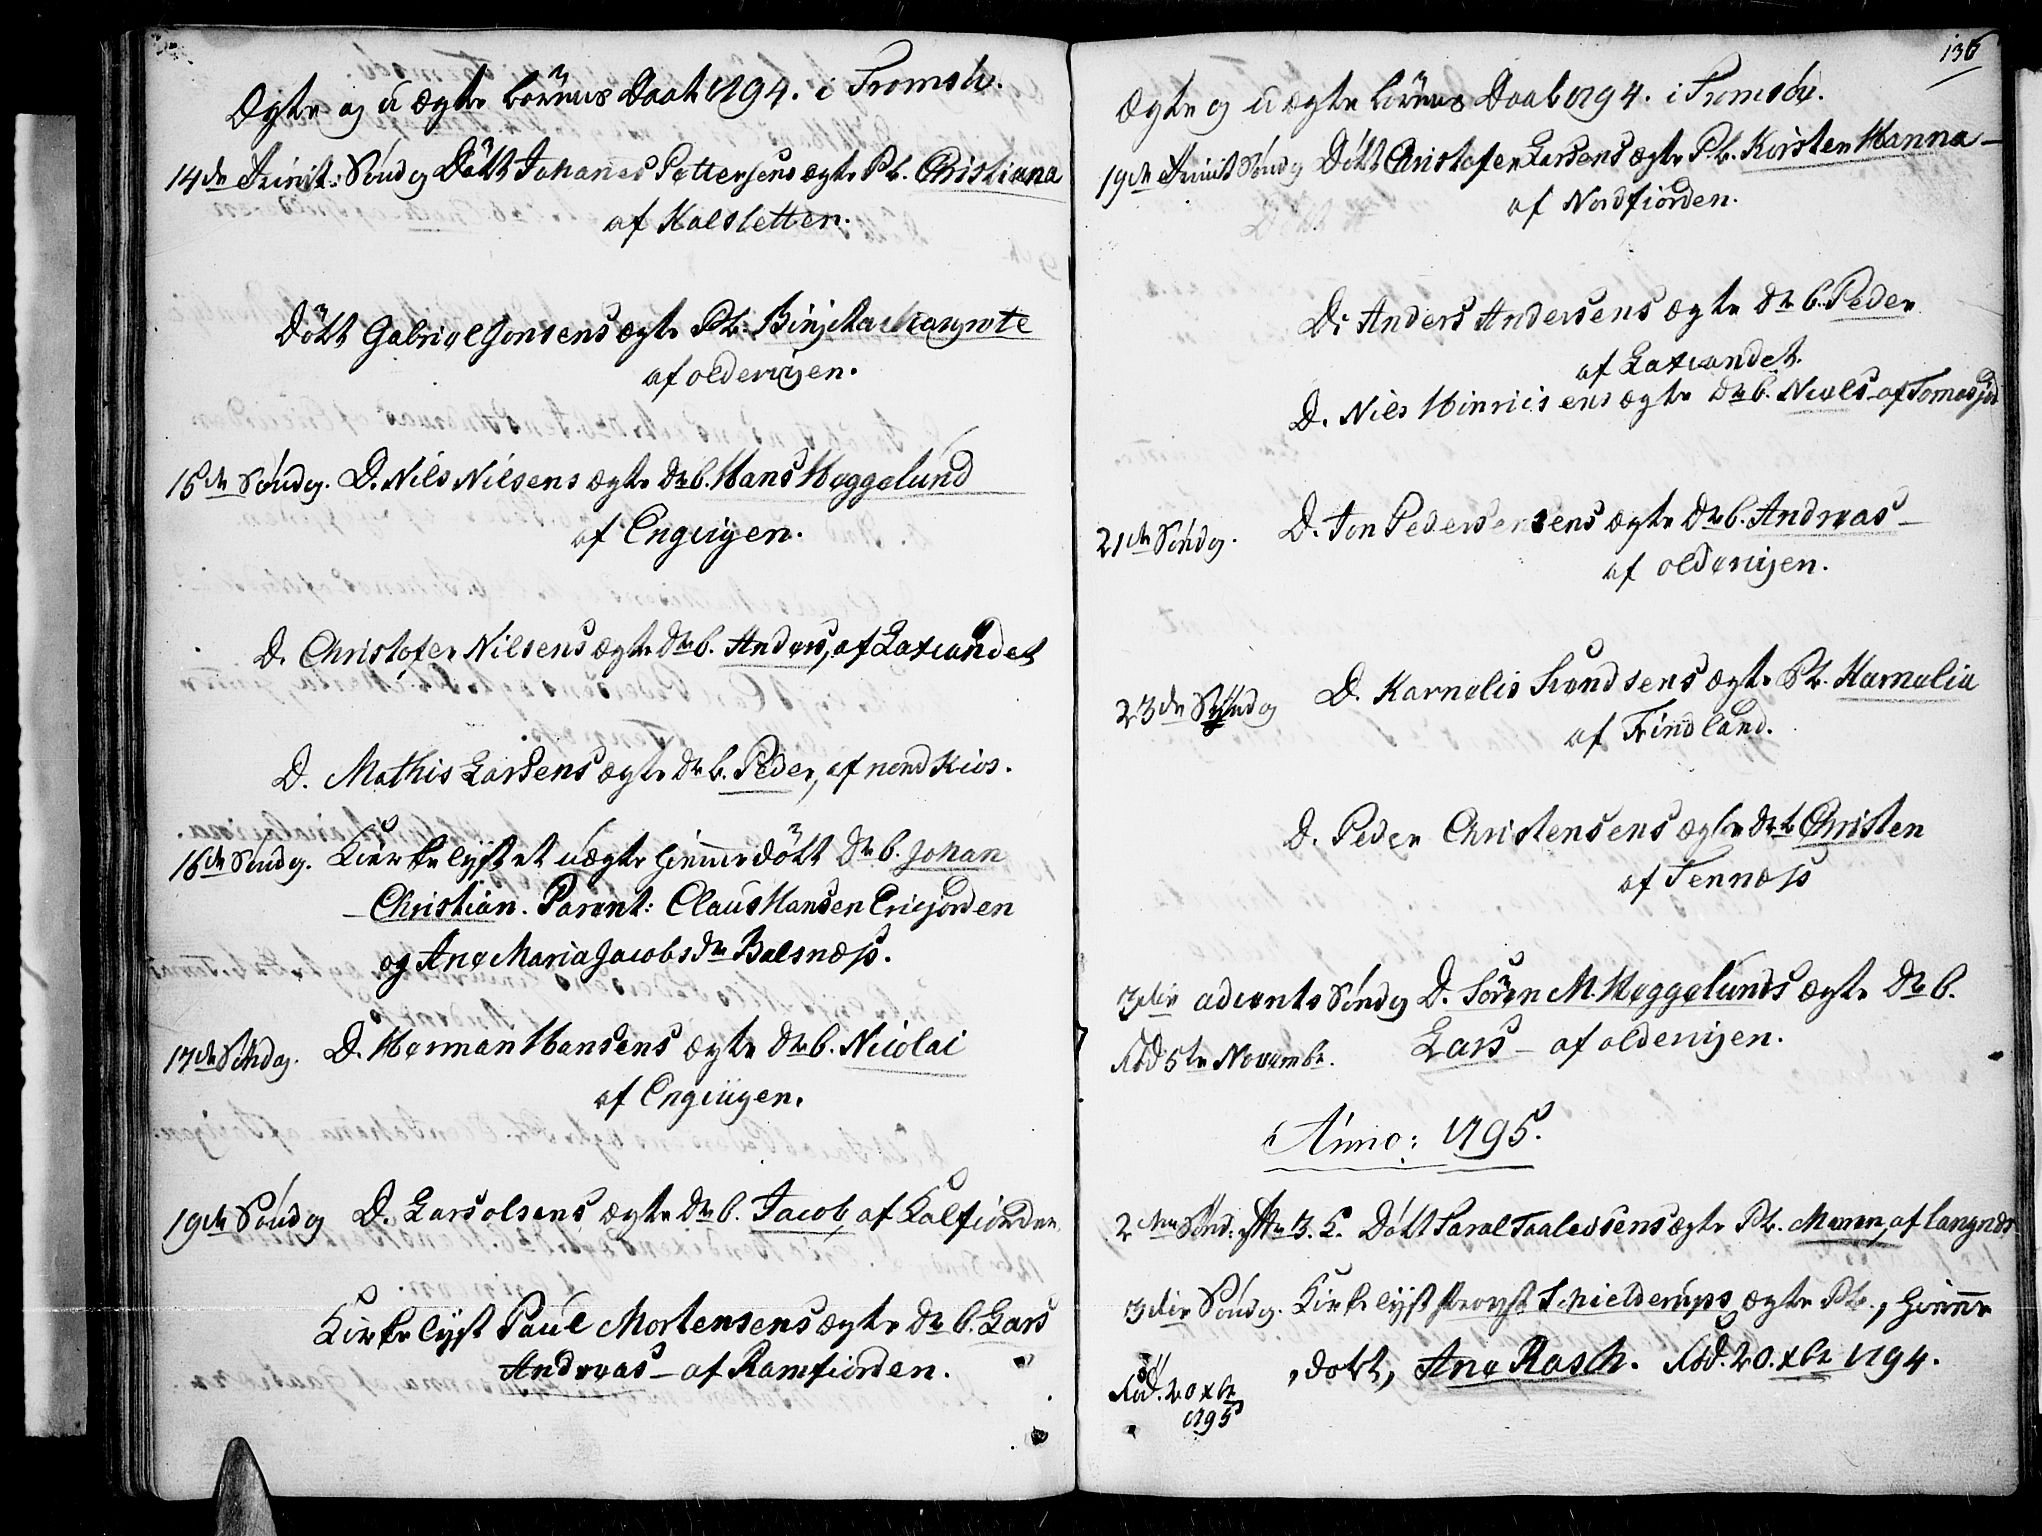 Ægte og u ægte börnes Daab 1794. i Tromsöe.
14de Trinit: Söndag Döbt Johanes Pettersens ægte Pb. Christiana
af Kalsletten.
Döbt Gabriel Jonsens ægte Pb.
af oldervigen.
15de Söndag. D. Nils Nilsens ægte Drb. Hans Heggelund
af Engvigen.
D. Christofer Nilsens ægte Drb. Anders, af Laxvandet
D. Mathis Larsens ægte Drb. Peder, af nordKios.
16de Söndag. Kirkelyst et uægte hiemmedöbt Drb. Johan
Christian. Parent: Claus Hansen Ericjorden
og Ane Maria Jacobs Dr Balsnæss.
17de Söndag. D. Herman Hansens ægte Drb. Nicolai
af Engvigen.
19de Söndag D. Lars olsens ægte Drb. Jacob, af Kalfiorden
Kirkelyst Paul Mortensens ægte Drb. Lars
Andreas - af Ramfiorden.
136
Ægte og u ægte börnes Daab 1794. i Tromsöe.
19de Trinit Söndag Döbt Christofer Larsens ægte Pb. Kirsten Hanna -
af Nordfiorden.
D: Anders Andersens ægte Drb. Peder
af Laxvandet.
D. Nils Hinricsens ægte Drb. Neels af Tomasjord
21de Söndag. D. Jon Pedersensens ægte Drb. Andreas -
af oldervigen.
23de Söndag D. Karnelis Svendsens ægte Pb. Karnelia
af Findland.
D. Peder Christensens ægte Drb Christen
af Tennæss
3die advents Söndag D. Sören M. Heggelunds ægte Drb.
Föd 5te Novembr. Lars - af oldervigen.
Anno: 1795.
2den Sönd: H. 3. K. Döbt Taalevsens ægte Pb. Maren, af langnæs
3die Söndag. Kirkelyst Provst Schielderups ægte Pb., hiemme
döbt, Ane Rasch. Föd. 20. xbr 1794.
Föd. 20 xbr
1795